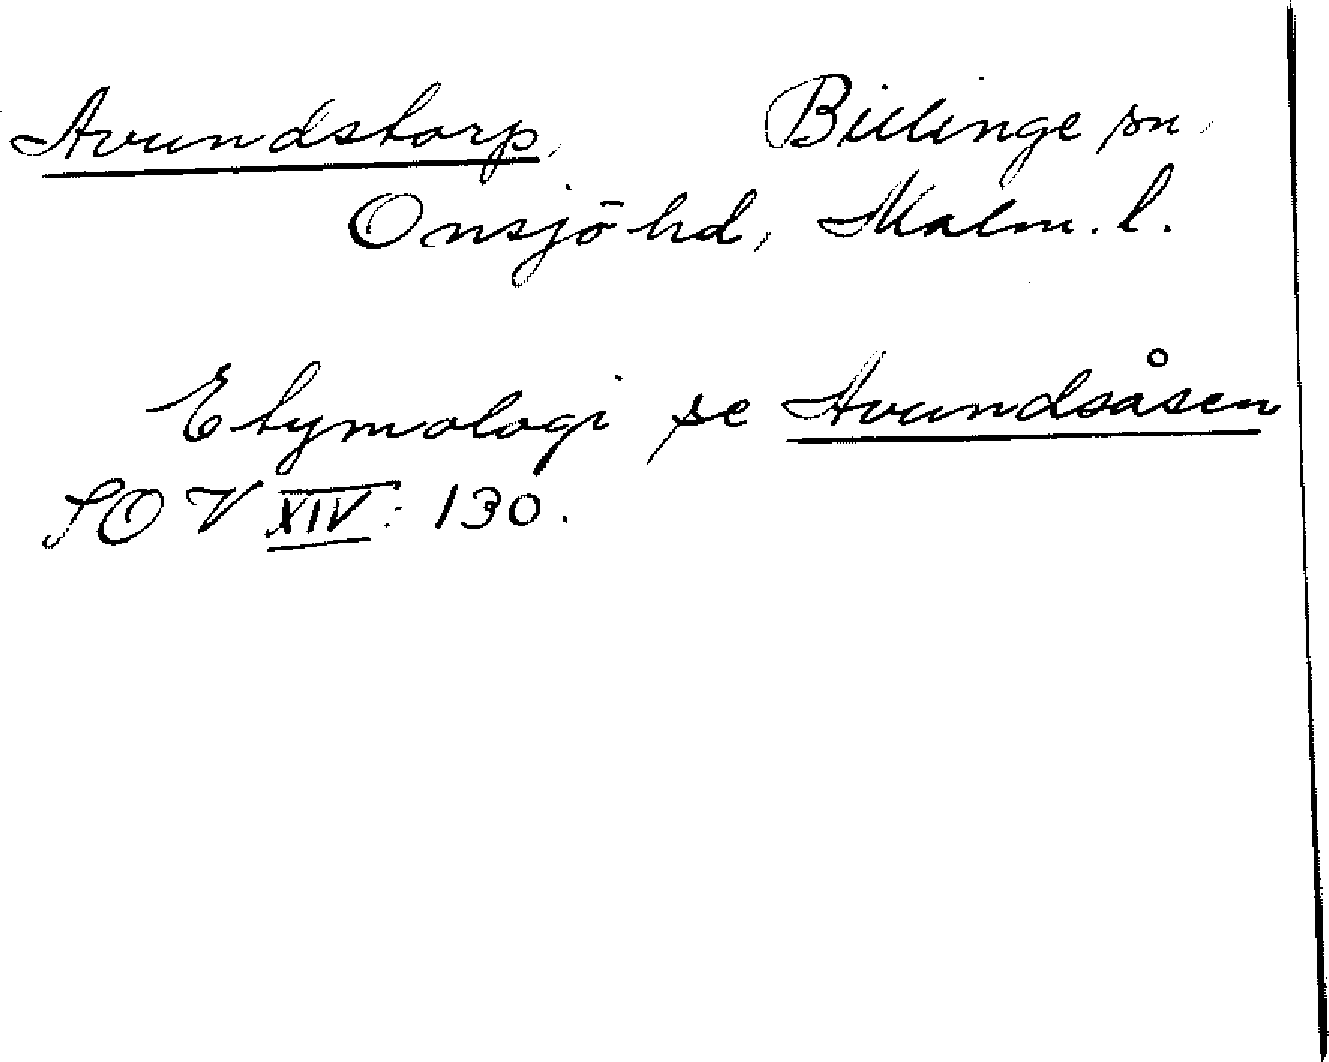 Avundstorp, Billinge sn,
Onsjö hd, Malm. l.
Etymologi se Avundsåsen
SOV XIV: 130.